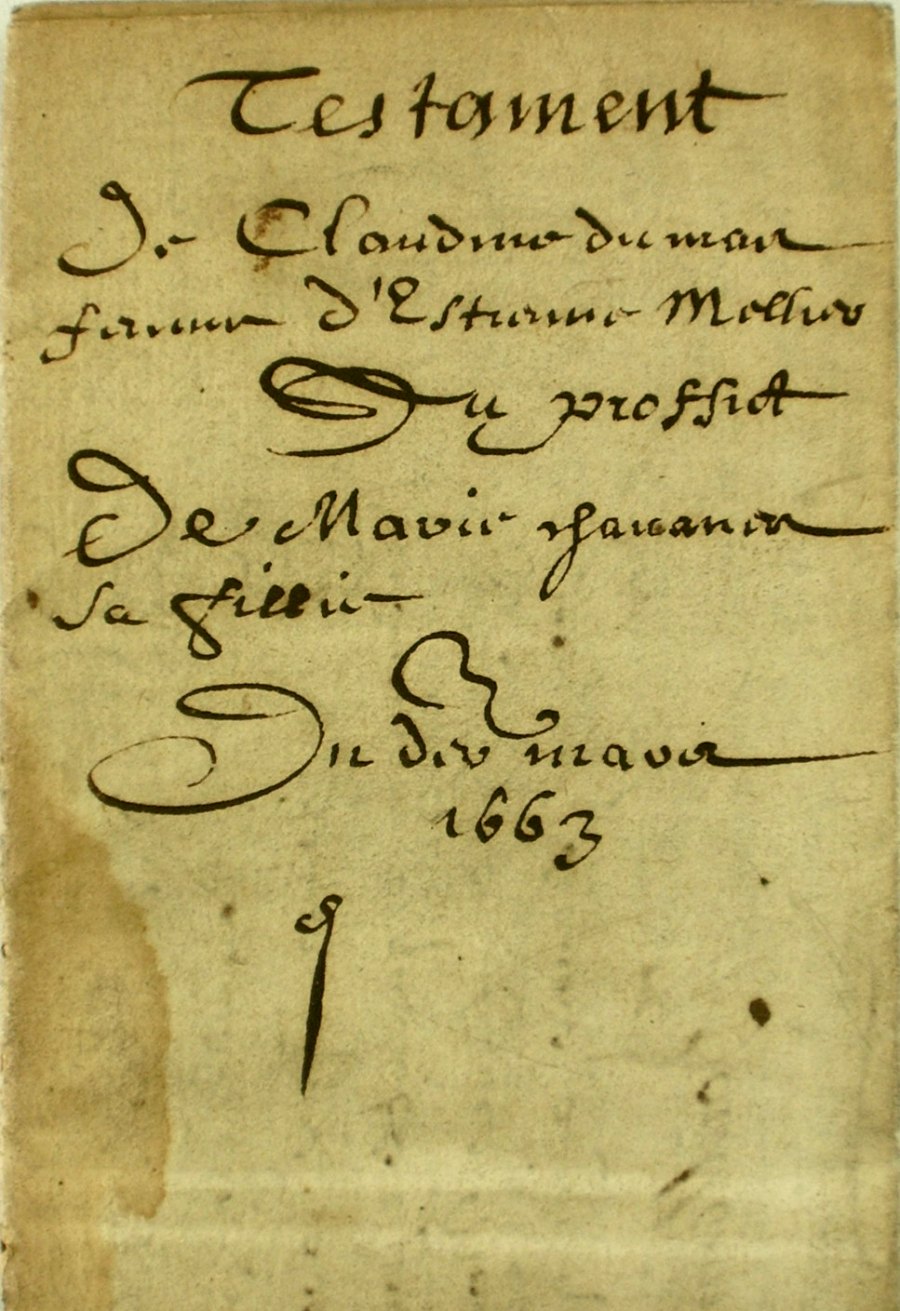 Testament
De Claudine dumas
femme d'Estienne Mellier
Du proffict
De Marie chavanes
sa fillie
Du der mars
1663